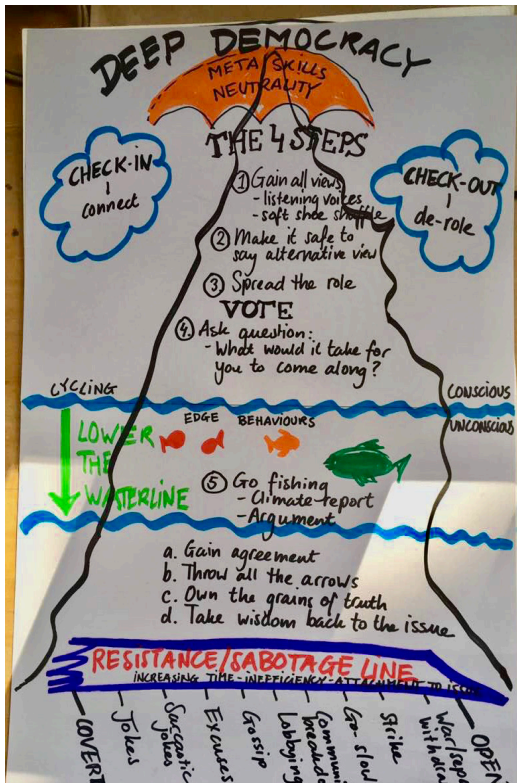 DEEP DEMOCRACY
META SKILLS
NEUTRALITY
THE 4 STEPS
CHECK-IN
connect
CHECK-OUT
de-role
① Gain all views
- listening voices
- soft shoe shuffle
② Make it safe to
say alternative view
③ Spread the role
VOTE
④ Ask question:
- What would it take for
you to come along?
CYCLING
CONSCIOUS
UNCONSCIOUS
EDGE BEHAVIOURS
LOWER
THE
WATERLINE
⑤ Go fishing
- Climate report
- Argument
a. Gain agreement
b. Throw all the arrows
c. Own the grains of truth
d. Take wisdom back to the issue
RESISTANCE/SABOTAGE LINE
INCREASING TIME-INEFFICIENCY-ATTACHMENT TO ISSUE
COVERT
Jokes
Sarcastic
jokes
Excuses
Gossip
Lobbying
Go-slow
Strike
OPEN